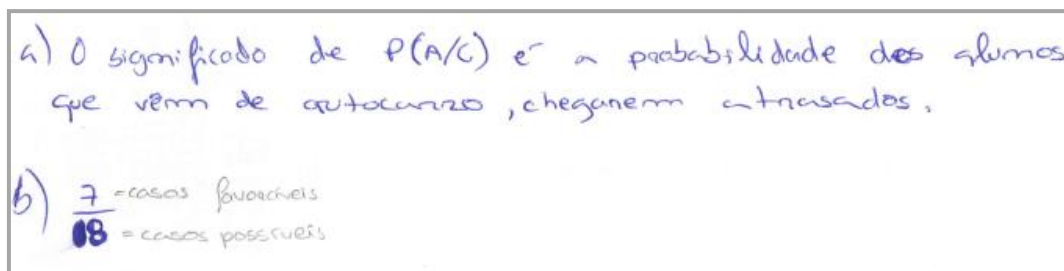 a) O significado de P(A/C) é a probabilidade dos alunos
que vêm de autocarro, chegarem atrasados.
b) 7 = casos favoráveis
18 = casos possíveis